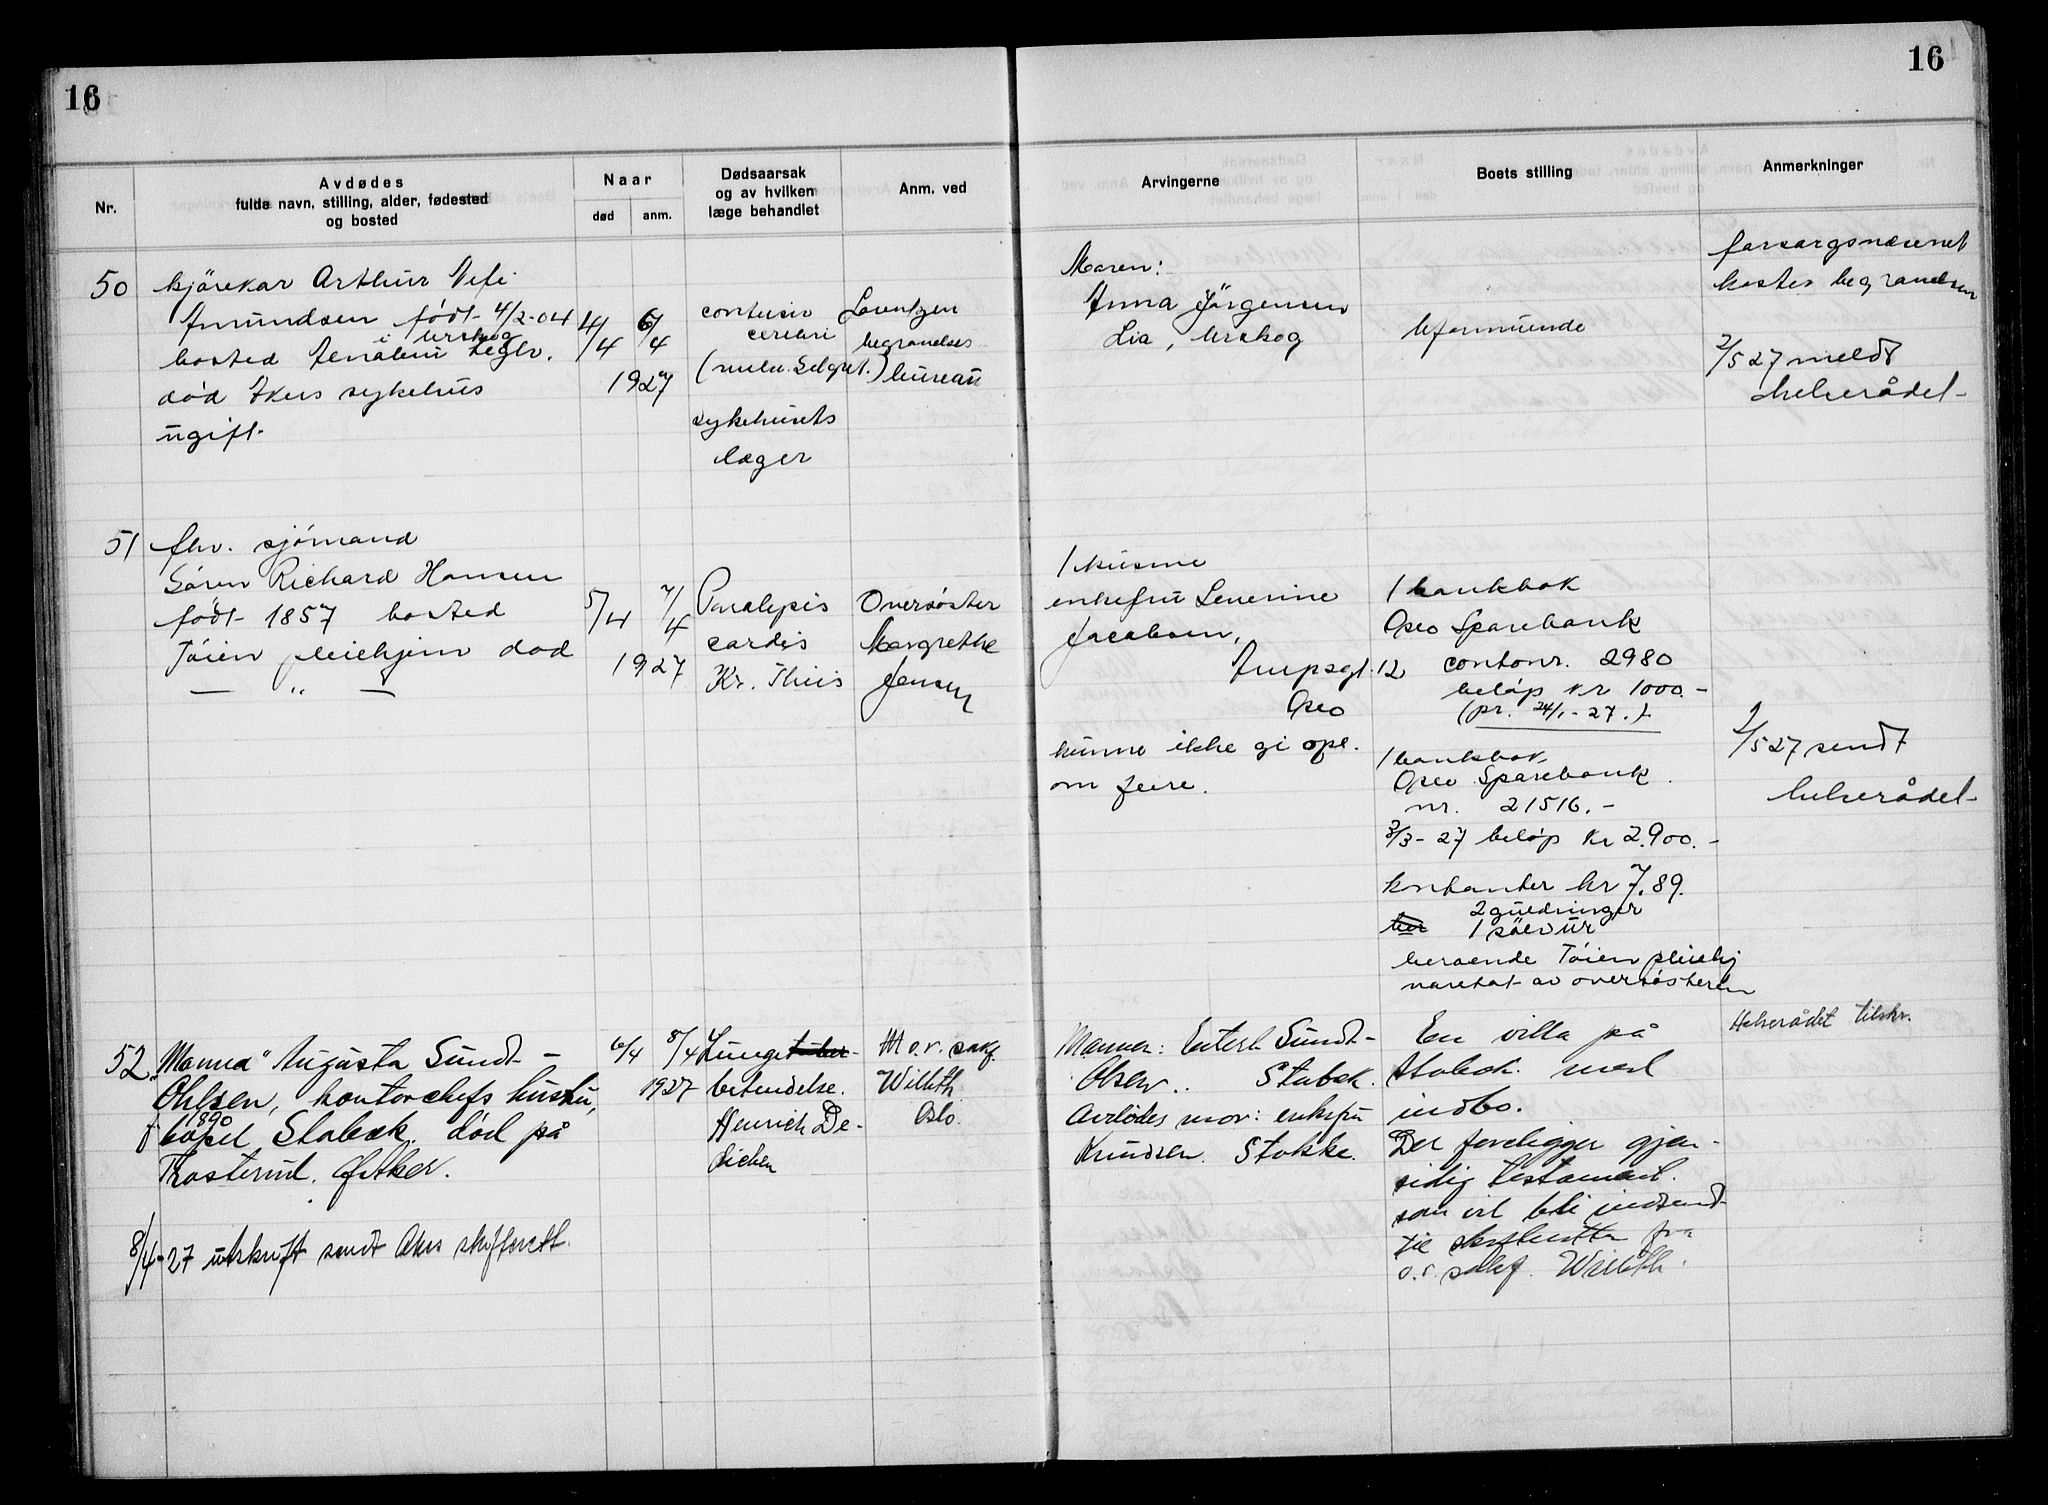 16
16
Nr.
Avdødes
fulde navn, stilling, alder, fødested
og bosted
Naar
død
anm.
Dødsaarsak
og av hvilken
læge behandlet
Anm. ved
Arvingerne
Boets stilling
Anmerkninger
50
kjörekar Arthur
Amundsen født 4/2-04
i Urskog
bosted
død Akers sykehus
ugift.
4/4
6/4
1927
contusio
cerebri
sykehusets
læger
Lorentzen
begravelses
bureau
Moren:
Anna Jörgensen
Lia, Urskog
Uformuende
forsorgsvæsenet
koster begravelsen
2/5 27 meldt
helserådet
51
fhv. sjömand
Sören Richard Hansen
født 1857 bosted
Töien pleiehjem død
— " —
5/4
7/4
1927
Paralysis
cardis
Kr. Thiis
Oversöster
Margrethe
Jensen
1 kusine
enkefru Severine
Jacobsen,
12
Oslo
kunne ikke gi opl.
om flere.
1 bankbok
Oslo Sparebank
contonr. 2980
beløp kr 1000.-
(pr. 24/1-27.)
1 bankbok
Oslo Sparebank.
nr. 21516.-
3/3-27 beløp kr 2.900.-
kontanter kr 7.89.
2 guldringer
1 sölvur
beroende Töien pleiehj
varetat av oversösteren
2/5 27 sendt
helserådet
52
"Manna" Augusta Sundt-
Ohlsen, kontorchefs hustru,
f 1890
bopel Stabæk. død på
Trosterud. Ø. Aker.
6/4
8/4
1927
Lunge-
betendelse.
Henrich De-
dichen
v. o.r. sakf.
Willoth
Oslo.
Mannen: Sundt-
Olsen.. Stabæk.
Avdødes mor: enkefru
Knudsen. Stokke.
En villa på
Stabæk. med
indbo.
Der foreligger gjen-
sidig testament.
som vil bli indsendt
til skifteretten fra
o.r. sakf. Willoth.
Helserådet tilskr.
8/4-27 utskrift sendt Akers skifterett.